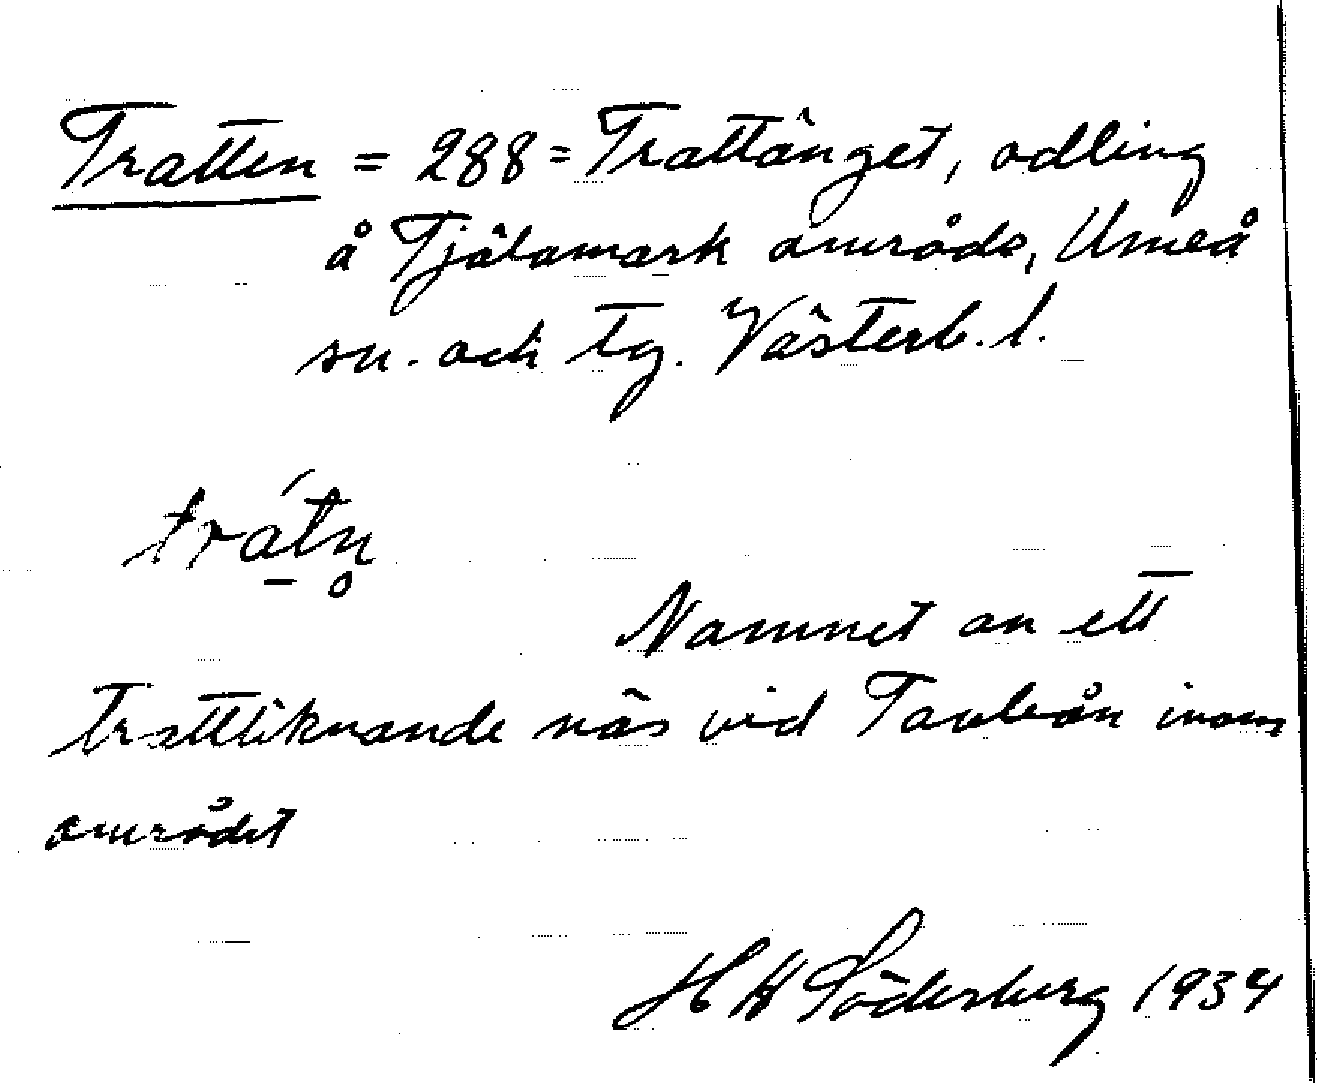 Tratten = 288 = Trattänget, odling
å Tjälamark område, Umeå
sn. och tg. Västerb. l.
trátn̥
Namnet av ett
trattliknande näs vid Tavleån inom
området
H W Söderberg 1934